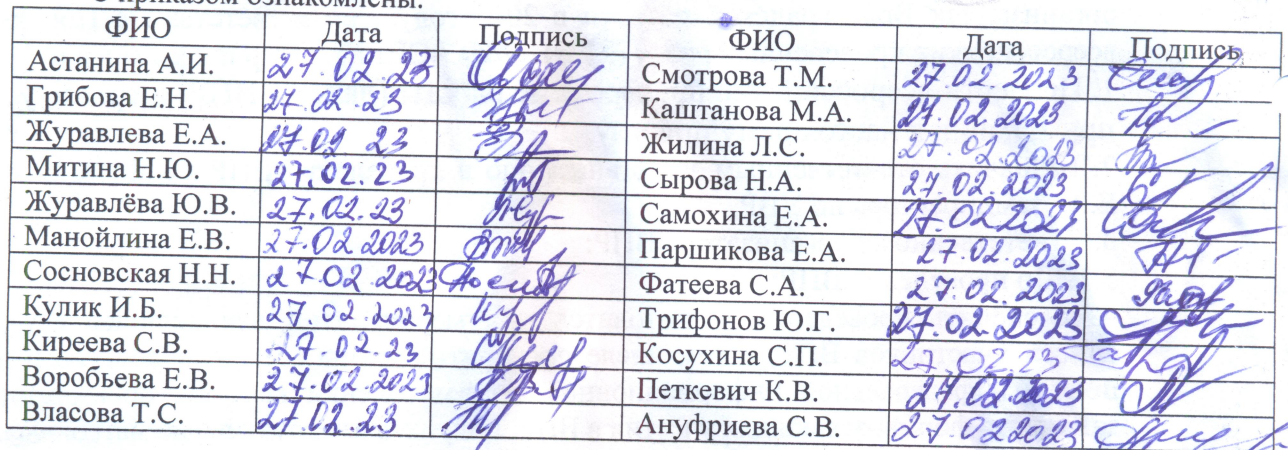 приказом ознакомлены.
ФИО Дата Подпись ФИО Дата Подпись
Астанина А.И. 27.02.23 Смотрова Т.М. 27.02.2023
Грибова Е.Н. 27.02.23 Каштанова М.А. 27.02.2023
Журавлева Е.А. 27.02 23 Жилина Л.С. 27.02.2023
Митина Н.Ю. 27.02.23 Сырова Н.А. 27.02.2023
Журавлёва Ю.В. 27.02.23 Самохина Е.А. 27.02.2023
Манойлина Е.В. 27.02 2023 Паршикова Е.А. 27.02.2023
Сосновская Н.Н. 27.02.2023 Фатеева С.А. 27.02.2023
Кулик И.Б. 27.02.2023 Трифонов Ю.Г. 27.02.2023
Киреева С.В. 27.02.23 Косухина С.П. 27.02.23
Воробьева Е.В. 27.02.2023 Петкевич К.В. 27.02.2023
Власова Т.С. 27.02.23 Ануфриева С.В. 27.02 2023